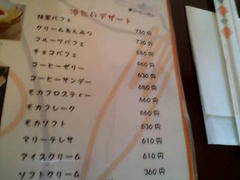 冷たいデザート
抹茶パフェ 730円
クリームあんみつ 730円
フルーツパフェ 730円
チョコパフェ 660円
コーヒーゼリー 630円
コーヒーサンデー 680円
モカフロスティー 660円
モカフレーク 660円
モカソフト 630円
マリーテレサ 610円
アイスクリーム 610円
ソフトクリーム 360円